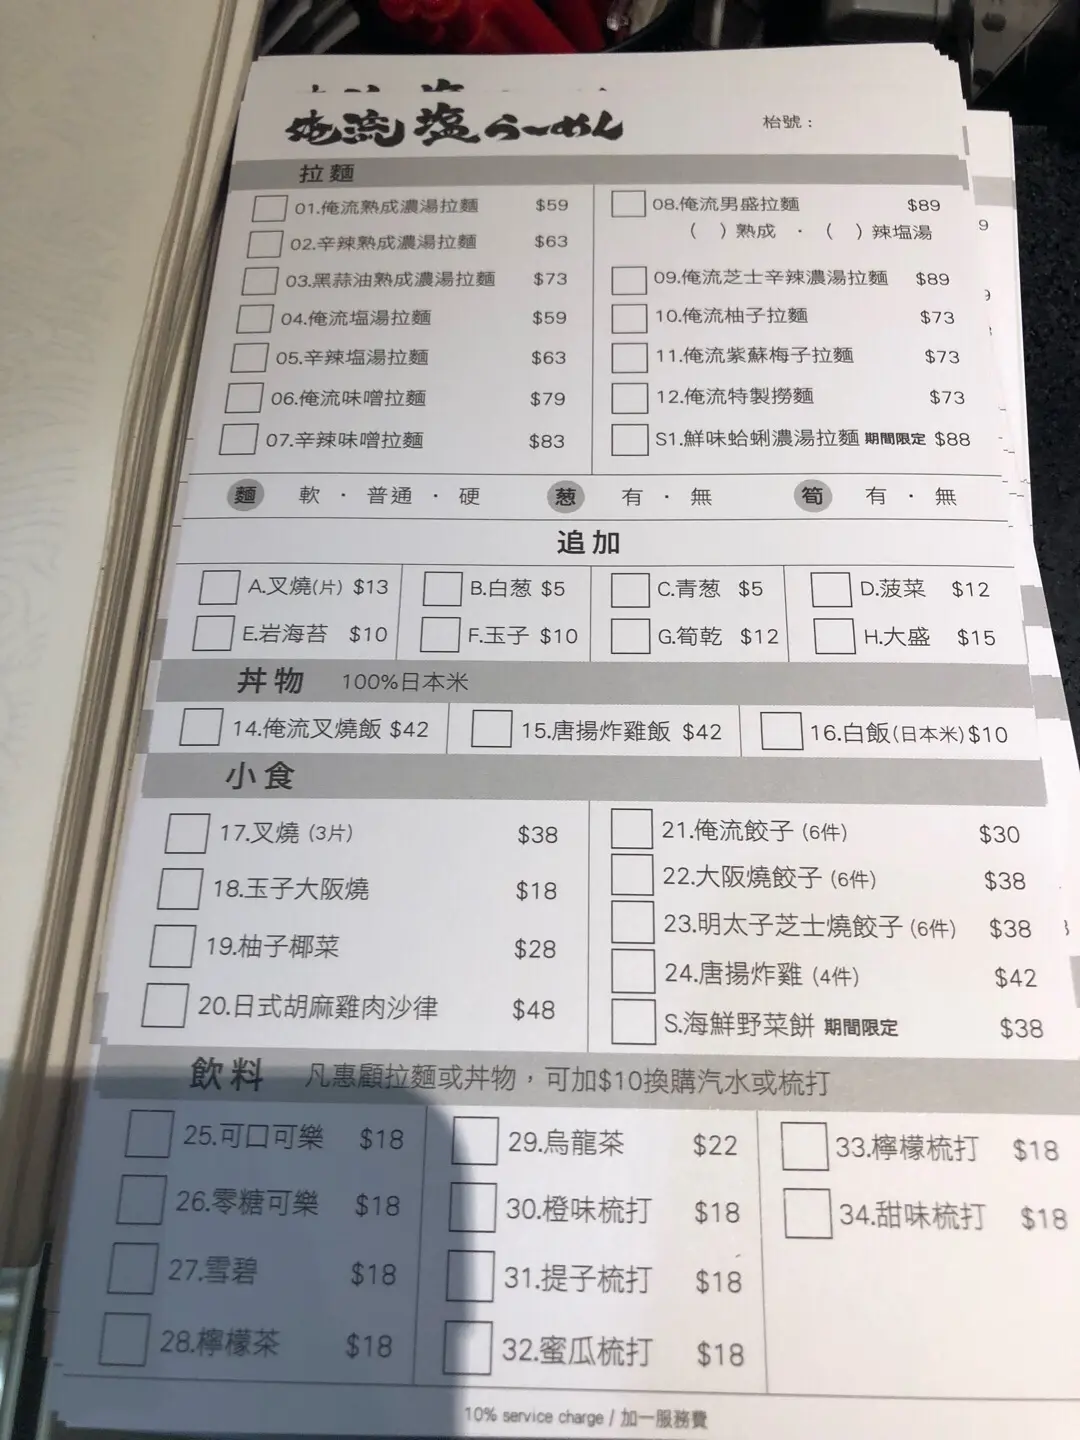 俺流塩らーめん
枱號：
拉麵
01.俺流熟成濃湯拉麵 $59
02.辛辣熟成濃湯拉麵 $63
03.黑蒜油熟成濃湯拉麵 $73
04.俺流塩湯拉麵 $59
05.辛辣塩湯拉麵 $63
06.俺流味噌拉麵 $79
07.辛辣味噌拉麵 $83
08.俺流男盛拉麵 $89
（ ）熟成 ・（ ）辣塩湯
09.俺流芝士辛辣濃湯拉麵 $89
10.俺流柚子拉麵 $73
11.俺流紫蘇梅子拉麵 $73
12.俺流特製撈麵 $73
S1.鮮味蛤蜊濃湯拉麵 期間限定 $88
麵 軟 ・ 普通 ・ 硬 葱 有 ・ 無 筍 有 ・ 無
追加
A.叉燒(片) $13 B.白葱 $5 C.青葱 $5 D.菠菜 $12
E.岩海苔 $10 F.玉子 $10 G.筍乾 $12 H.大盛 $15
丼物 100%日本米
14.俺流叉燒飯 $42 15.唐揚炸雞飯 $42 16.白飯(日本米) $10
小食
17.叉燒 (3片) $38
18.玉子大阪燒 $18
19.柚子椰菜 $28
20.日式胡麻雞肉沙律 $48
21.俺流餃子 (6件) $30
22.大阪燒餃子 (6件) $38
23.明太子芝士燒餃子 (6件) $38
24.唐揚炸雞 (4件) $42
S.海鮮野菜餅 期間限定 $38
飲料 凡惠顧拉麵或丼物，可加$10換購汽水或梳打
25.可口可樂 $18
26.零糖可樂 $18
27.雪碧 $18
28.檸檬茶 $18
29.烏龍茶 $22
30.橙味梳打 $18
31.提子梳打 $18
32.蜜瓜梳打 $18
33.檸檬梳打 $18
34.甜味梳打 $18
10% service charge / 加一服務費